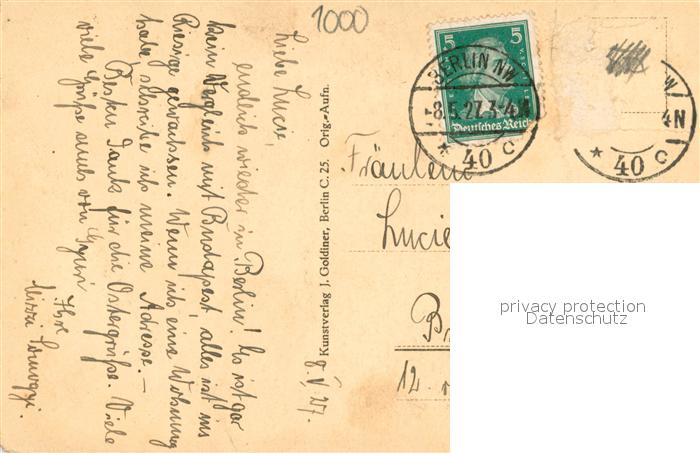 1000
Liebe Lucie,
endlich wieder in Berlin! Es ist gar
kein Vergleich mit Budapest, alles ist ins
Riesige gewachsen. Wenn ich eine Wohnung
habe, schreibe ich meine Adresse. –
Besten Dank für die Ostergrüße. Viele
viele Grüße auch von
Ihre
8.V.27.
Kunstverlag J. Goldiner, Berlin C. 25. Orig.-Aufn.
5 5
Deutsches Reich
BERLIN NW
-8.5.27.3-4N
* 40 c
W
4N
* 40 c
Fräulein
Lucie
12.
privacy protection
Datenschutz